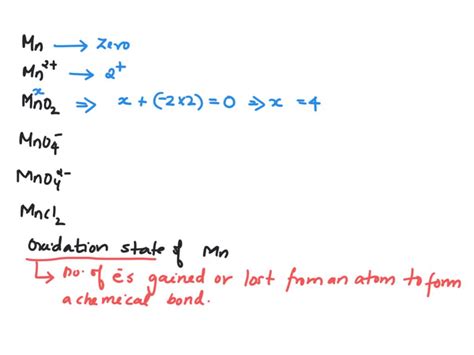 Mn → Zero
Mn²⁺ → 2⁺
x
MnO₂ ⇒ x + (-2×2) = 0 ⇒ x = 4
MnO₄⁻
MnO₄²⁻
MnCl₂
Oxidation state of Mn
↳ no. of ēs gained or lost from an atom to form
a chemical bond.